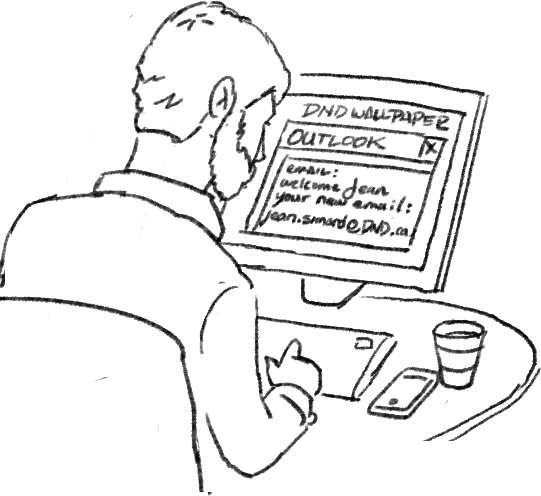 DND WALLPAPER
OUTLOOK X
email:
welcome Jean
your new email:
jean.simard@DND.ca